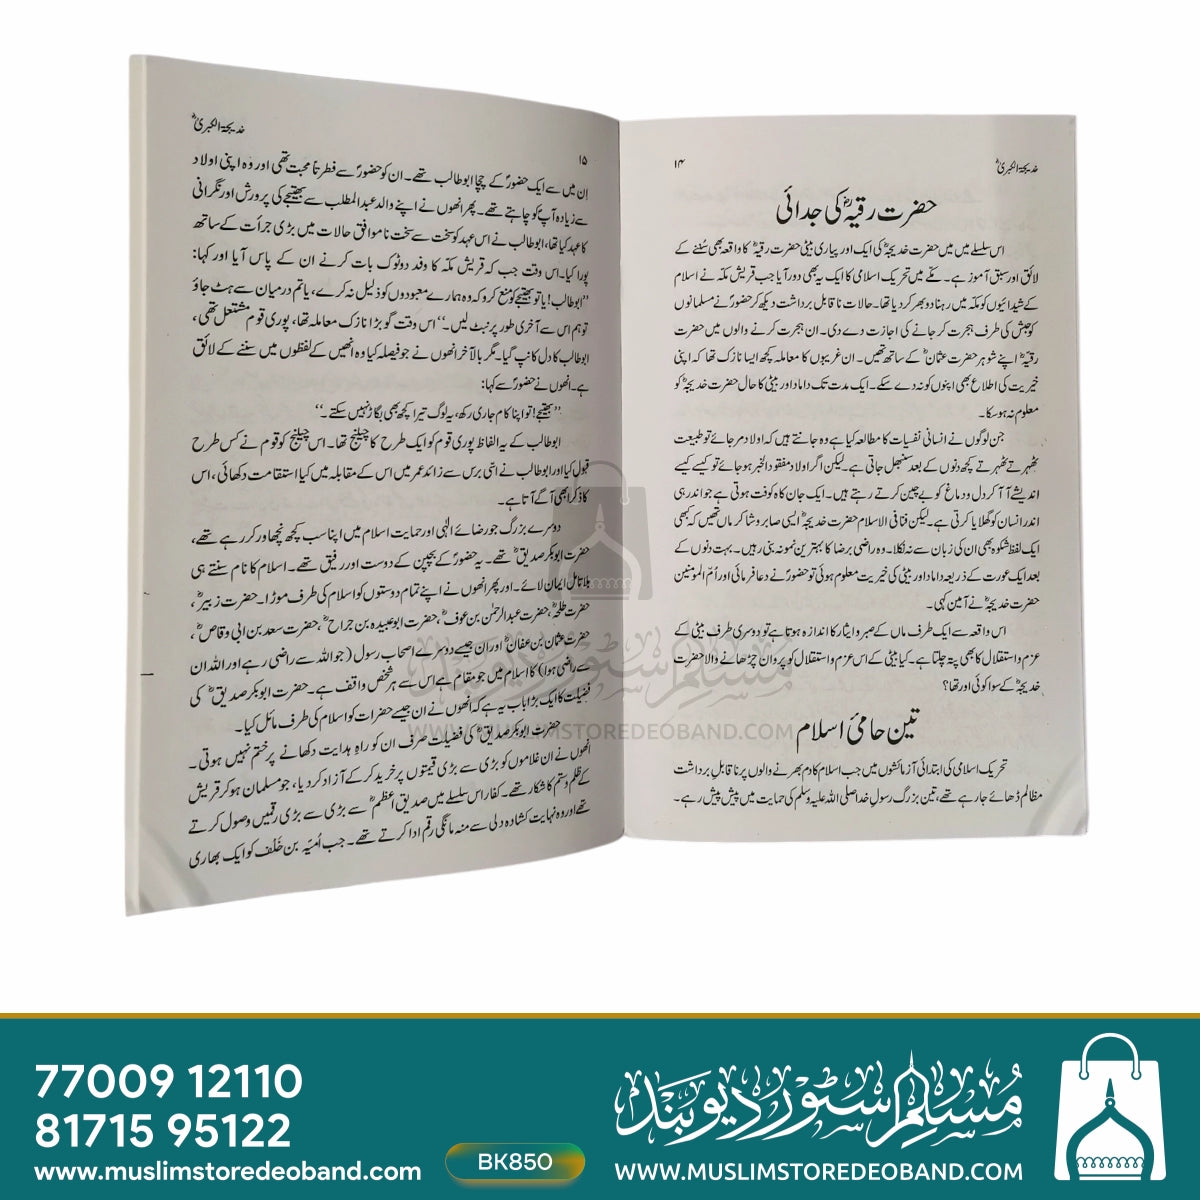 خدیجۃ الکبریٰؓ
۱۴
حضرت رقیہؓ کی جدائی
اس سلسلے میں میں حضرت خدیجہؓ کی ایک اور پیاری بیٹی حضرت رقیہؓ کا واقعہ بھی سُننے کے
لائق اور سبق آموز ہے۔ مکّے میں تحریک اسلامی کا ایک یہ بھی دور آیا جب قریش مکّہ نے اسلام
کے شیدائیوں کو مکہ میں رہنا دوبھر کر دیا تھا۔ حالات ناقابل برداشت دیکھ کر حضورؐ نے مسلمانوں
کو حبش کی طرف ہجرت کر جانے کی اجازت دے دی۔ ان ہجرت کرنے والوں میں حضرت
رقیہؓ اپنے شوہر حضرت عثمانؓ کے ساتھ تھیں۔ ان غریبوں کا معاملہ کچھ ایسا نازک تھا کہ اپنی
خیریت کی اطلاع بھی اپنوں کو نہ دے سکے۔ ایک مدت تک داماد اور بیٹی کا حال حضرت خدیجہؓ کو
معلوم نہ ہو سکا۔
جن لوگوں نے انسانی نفسیات کا مطالعہ کیا ہے وہ جانتے ہیں کہ اولاد مر جائے تو طبیعت
ٹھہرتے ٹھہرتے کچھ دنوں کے بعد سنبھل جاتی ہے۔ لیکن اگر اولاد مفقود الخبر ہو جائے تو کیسے کیسے
اندیشے آ آ کر دل و دماغ کو بے چین کرتے رہتے ہیں۔ ایک جان کاہ کوفت ہوتی ہے جو اندر ہی
اندر انسان کو گھلایا کرتی ہے۔ لیکن فنافی الاسلام حضرت خدیجہؓ ایسی صابر و شاکر ماں تھیں کہ کبھی
ایک لفظ شکوہ بھی ان کی زبان سے نہ نکلا۔ وہ راضی برضا کا بہترین نمونہ بنی رہیں۔ بہت دنوں کے
بعد ایک عورت کے ذریعہ داماد اور بیٹی کی خیریت معلوم ہوئی تو حضورؐ نے دعا فرمائی اور اُمّ المومنین
حضرت خدیجہؓ نے آمین کہی۔
اس واقعہ سے ایک طرف ماں کے صبر و ایثار کا اندازہ ہوتا ہے تو دوسری طرف بیٹی کے
عزم و استقلال کا بھی پتہ چلتا ہے۔ کیا بیٹی کے اس عزم و استقلال کو پروان چڑھانے والا حضرت
خدیجہؓ کے سوا کوئی اور تھا؟
تین حامیٔ اسلام
تحریک اسلامی کی ابتدائی آزمائشوں میں جب اسلام کا دم بھرنے والوں پر ناقابل برداشت
مظالم ڈھائے جا رہے تھے، تین بزرگ رسولِ خدا صلی اللہ علیہ وسلم کی حمایت میں پیش پیش رہے۔
خدیجۃ الکبریٰؓ
۱۵
اِن میں سے ایک حضورؐ کے چچا ابو طالب تھے۔ ان کو حضورؐ سے فطرتاً محبت تھی اور وہ اپنی اولاد
سے زیادہ آپؐ کو چاہتے تھے۔ پھر انھوں نے اپنے والد عبدالمطلب سے بھتیجے کی پرورش اور نگرانی
کا عہد کیا تھا، ابو طالب نے اس عہد کو سخت سے سخت ناموافق حالات میں بڑی جرأت کے ساتھ
پورا کیا۔ اس وقت جب کہ قریش مکّہ کا وفد دوٹوک بات کرنے ان کے پاس آیا اور کہا:
’’ابو طالب! یا تو بھتیجے کو منع کرو کہ وہ ہمارے معبودوں کو ذلیل نہ کرے، یا تم درمیان سے ہٹ جاؤ
تو ہم اس سے آخری طور پر نبٹ لیں۔‘‘ اس وقت گو بڑا نازک معاملہ تھا، پوری قوم مشتعل تھی،
ابو طالب کا دل کانپ گیا۔ مگر بالآخر انھوں نے جو فیصلہ کیا وہ انھیں کے لفظوں میں سننے کے لائق
ہے۔ انھوں نے حضورؐ سے کہا:
’’بھتیجے! تو اپنا کام جاری رکھ، یہ لوگ تیرا کچھ بھی بگاڑ نہیں سکتے۔‘‘
ابو طالب کے یہ الفاظ پوری قوم کو ایک طرح کا چیلنج تھا۔ اس چیلنج کو قوم نے کس طرح
قبول کیا اور ابو طالب نے اسّی برس سے زائد عمر میں اس کے مقابلہ میں کیا استقامت دکھائی، اس
کا ذکر ابھی آگے آتا ہے۔
دوسرے بزرگ جو رضائے الٰہی اور حمایت اسلام میں اپنا سب کچھ نچھاور کر رہے تھے،
حضرت ابو بکر صدیقؓ تھے۔ یہ حضورؐ کے بچپن کے دوست اور رفیق تھے۔ اسلام کا نام سنتے ہی
بلا تامل ایمان لائے۔ اور پھر انھوں نے اپنے تمام دوستوں کو اسلام کی طرف موڑا۔ حضرت زبیرؓ،
حضرت طلحہؓ، حضرت عبدالرحمٰن بن عوفؓ، حضرت ابو عبیدہ بن جراحؓ، حضرت سعد بن ابی وقاصؓ،
حضرت عثمان بن عفانؓ اور ان جیسے دوسرے اصحاب رسول (جو اللہ سے راضی رہے اور اللہ ان
سے راضی ہوا) کا اسلام میں جو مقام ہے اس سے ہر شخص واقف ہے۔ حضرت ابو بکر صدیقؓ کی
فضیلت کا ایک بڑا باب یہ ہے کہ انھوں نے ان جیسے حضرات کو اسلام کی طرف مائل کیا۔
حضرت ابو بکر صدیقؓ کی فضیلت صرف ان کو راہِ ہدایت دکھانے پر ختم نہیں ہوتی۔
انھوں نے ان غلاموں کو بڑی سے بڑی قیمتوں پر خرید کر کے آزاد کر دیا، جو مسلمان ہو کر قریش
کے ظلم و ستم کا شکار تھے۔ کفار اس سلسلے میں صدیق اعظمؓ سے بڑی سے بڑی رقمیں وصول کرتے
تھے اور وہ نہایت کشادہ دلی سے منہ مانگی رقم ادا کرتے تھے۔ جب اُمیّہ بن خَلف کو ایک بھاری
مسلم سٹور دیوبند
WWW.MUSLIMSTOREDEOBAND.COM
77009 12110
81715 95122
www.muslimstoredeoband.com
BK850
مسلم سٹور دیوبند
WWW.MUSLIMSTOREDEOBAND.COM